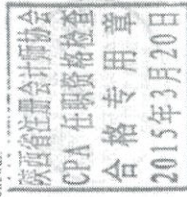 陕西省注册会计师协会
CPA 任职资格检查
合格专用章
2015年3月20日